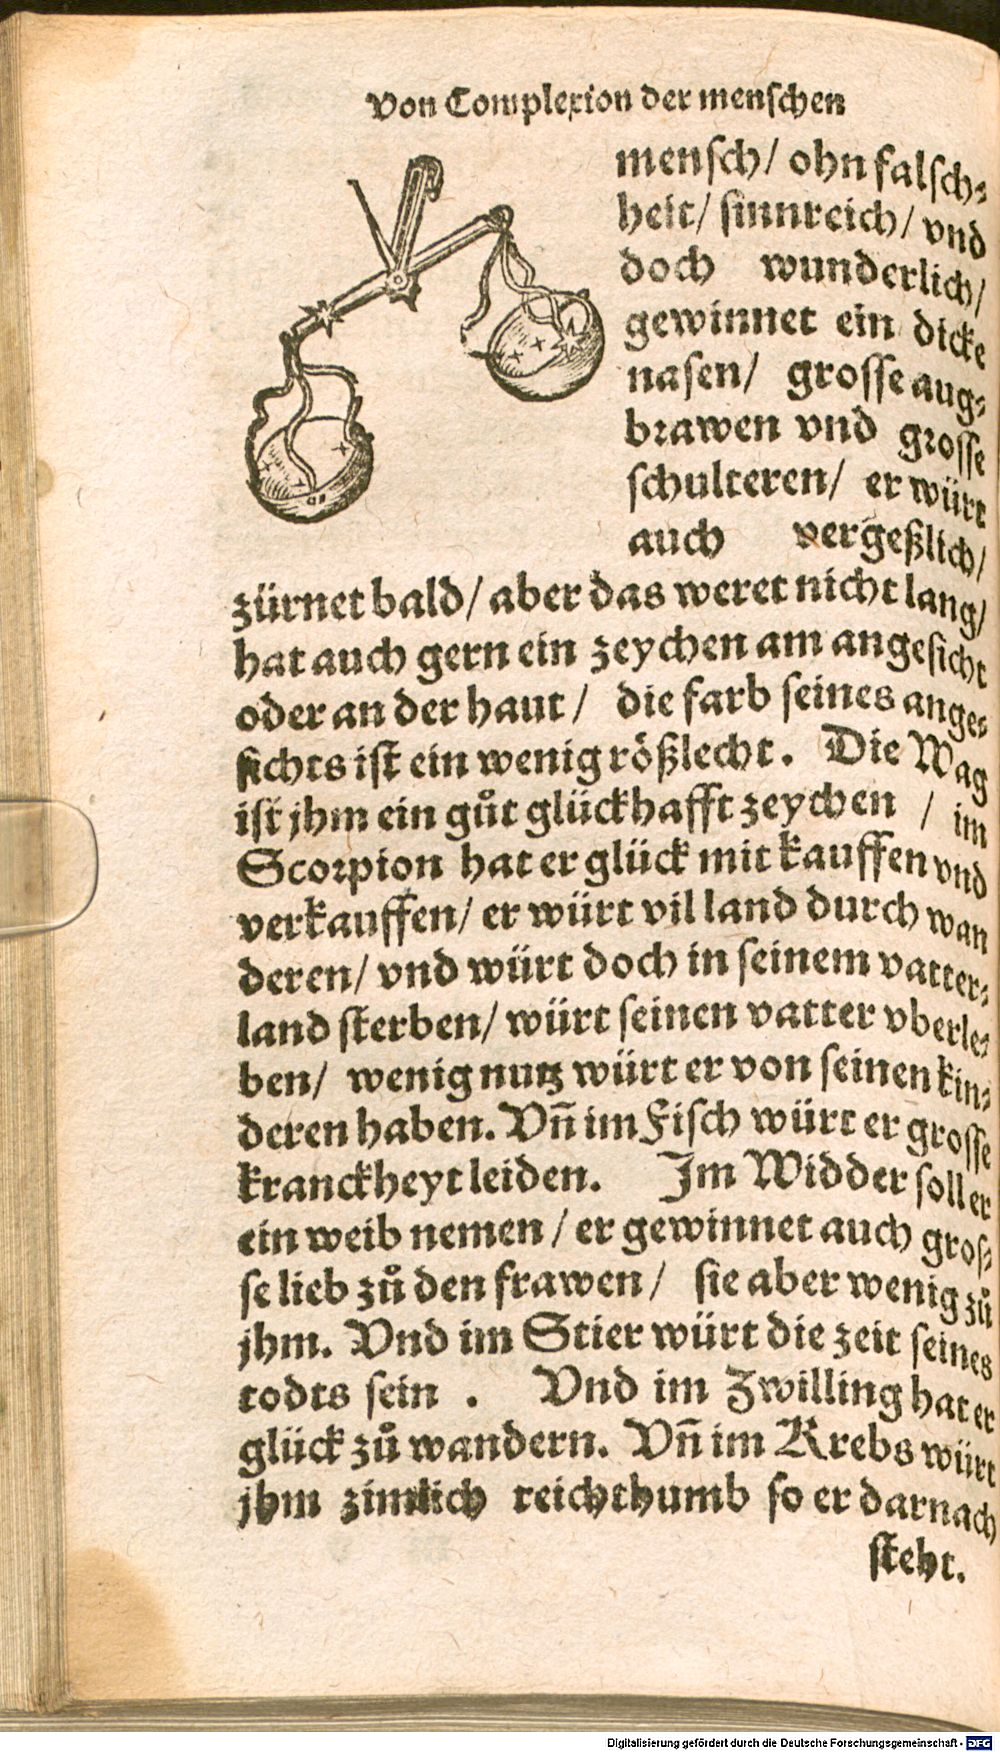 Von Complexion der menschen
mensch/ ohn falsch⸗
heit/ sinnreich/ vnd
doch wunderlich/
gewinnet ein dicke
nasen/ grosse aug⸗
brawen vnd grosse
schulteren/ er würt
auch vergeßlich/
zürnet bald/ aber das weret nicht lang/
hat auch gern ein zeychen am angesicht
oder an der haut / die farb seines ange⸗
sichts ist ein wenig rößlecht. Die Wag
ist jhm ein gůt glückhafft zeychen / im
Scorpion hat er glück mit kauffen vnd
verkauffen/ er würt vil land durch wan
deren/ vnd würt doch in seinem vatter⸗
land sterben/ würt seinen vatter vberle⸗
ben/ wenig nutz würt er von seinen kin⸗
deren haben. Vñ im Fisch würt er grosse
kranckheyt leiden. Im Widder soll er
ein weib nemen / er gewinnet auch gros⸗
se lieb zů den frawen/ sie aber wenig zů
jhm. Vnd im Stier würt die zeit seines
todts sein . Vnd im Zwilling hat er
glück zů wandern. Vñ im Krebs würt
jhm zimlich reichthumb so er darnach
steht.
Digitalisierung gefördert durch die Deutsche Forschungsgemeinschaft - DFG